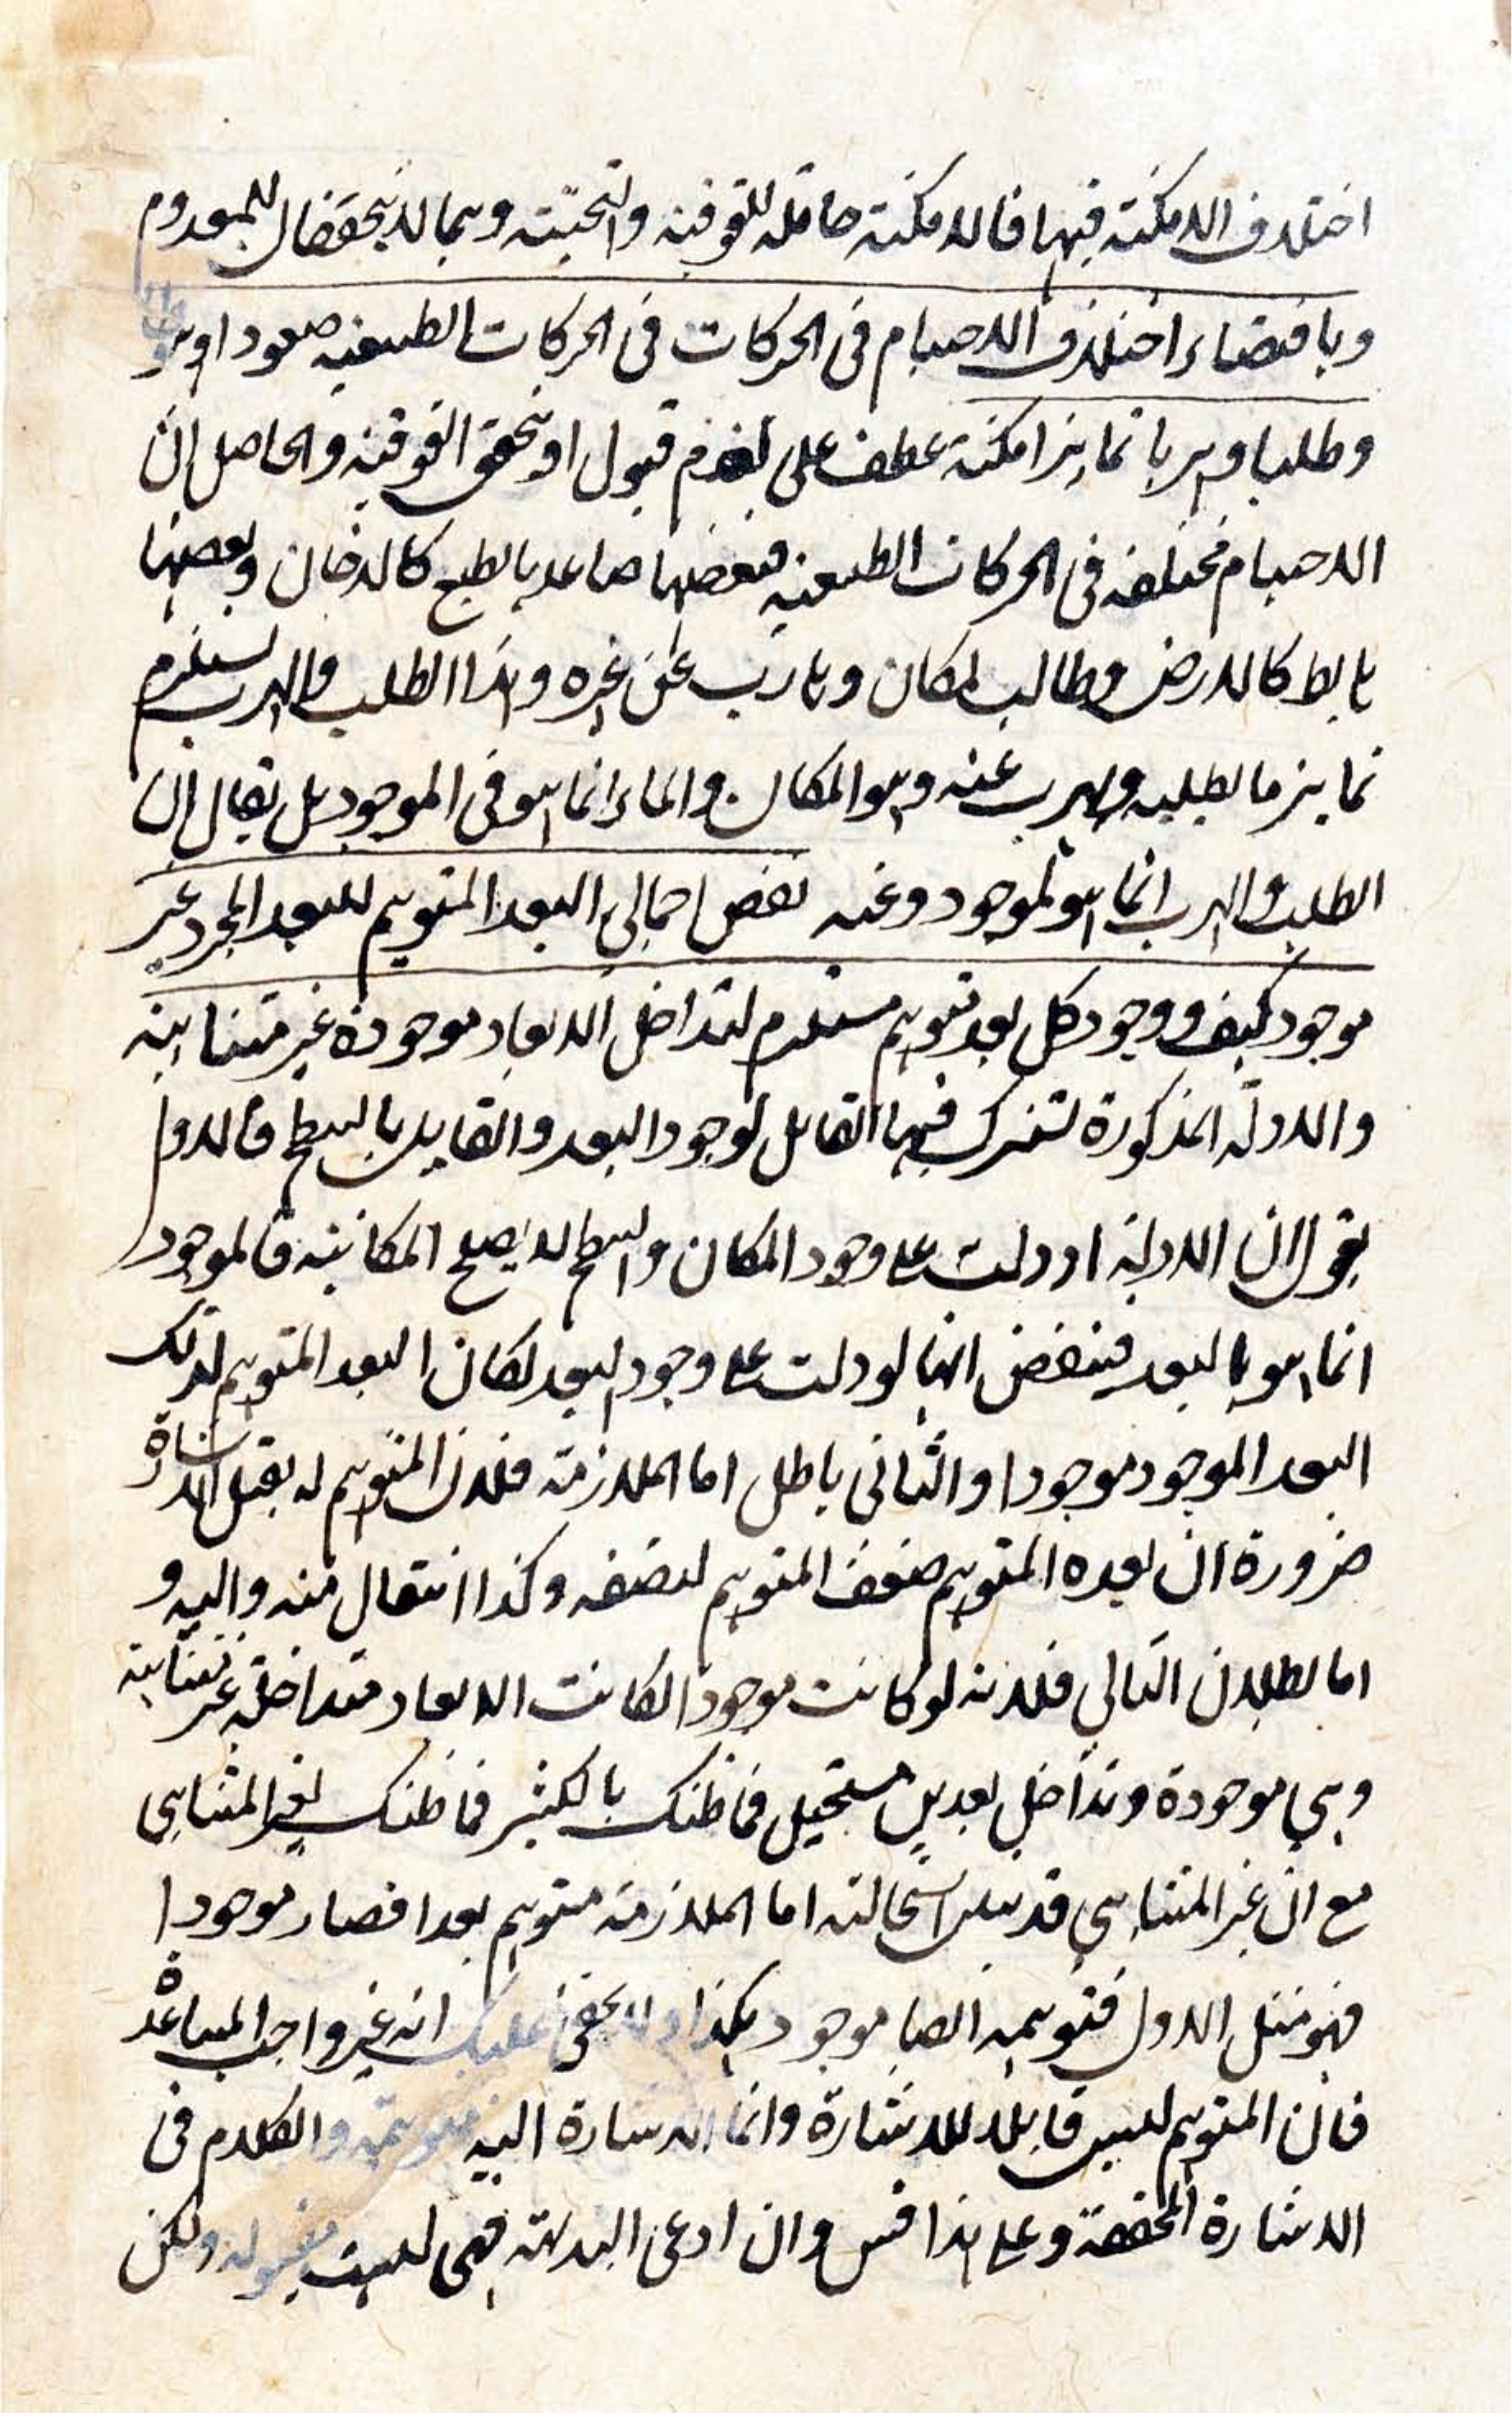 اختلاف الامكنة فيها فالامكنة حاملة للفوقية والتحتية وهما لا يتحققان للمعدوم
وباقتضاء اختلاف الاجسام فى الحركات فى الحركات الطبيعية صعودا و
وطلبا وهربا تمايز امكنة عطف على لعدم قبول او تحقق الفوقية والحاصل ان
الاجسام مختلفة فى الحركات الطبيعية فبعضها صاعد بالطبع كالدخان وبعضها
هابط كالارض وطالب لمكان وهارب عن غيره وهذا الطلب والهرب يستلزم
تمايز ما يطلبه ويهرب عنه وهو المكان والتمايز انما هو فى الموجود بل يقال ان
الطلب والهرب انما هو لموجود وعنه نقض اجمالى البعد المتوهم للبعد المجرد غير
موجود كيف ووجود كل بعد متوهم مستلزم لتداخل الابعاد موجودة غير متناهية
والادلة المذكورة تشترك فيها القائل لوجود البعد والقايل بالسطح فالاول
يقول ان الادلة اذ دلت على وجود المكان والسطح لا يصلح المكانية فالموجود
انما هو البعد فينقض انها لو دلت على وجود البعد لكان البعد المتوهم لذلك
البعد الموجود موجودا والثانى باطل اما الملازمة فلان المتوهم له يقبل الاشارة
ضرورة ان بعده المتوهم ضعف المتوهم لنصفه وكذا انتقال منه واليه و
اما بطلان التالى فلانه لو كانت موجودا لكانت الابعاد متداخلة غير متناهية
وهى موجودة وتداخل بعدين مستحيل فما ظنك بالكثير فما ظنك لغير المتناهى
مع ان غير المتناهى قد تبين استحالته اما الملازمة متوهم بعدا فصار موجودا
فهو مثل الاول فتوهمه ايضا موجود هكذا ولا يخفى عليك انه غير واجب المساعدة
فان المتوهم ليس قابلا للاشارة وانما الاشارة اليه متوهمة والكلام فى
الاشارة المحققة وعلى هذا فقس وان ادعى البداهة فهى ليست مقبولة ولكن